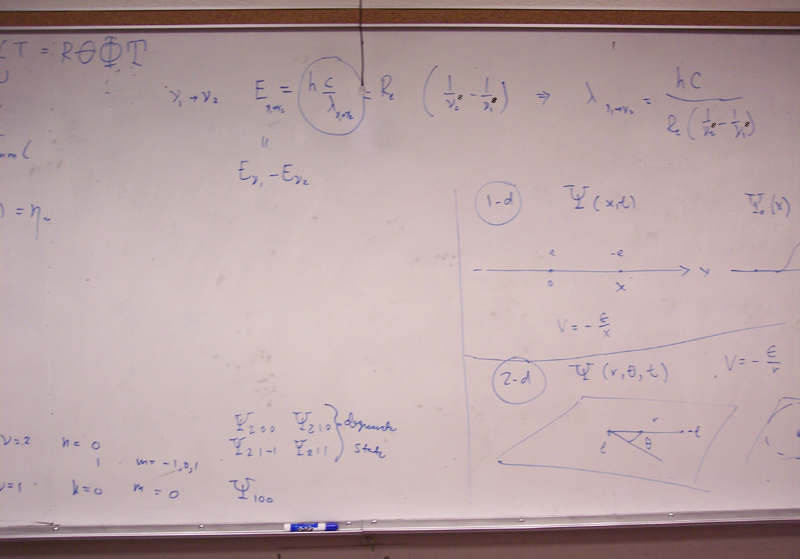 T = RΘΦT
ν₁→ν₂ E ν₁→ν₂ = h c/λ ν₁→ν₂ = Rₑ (1/ν₂² - 1/ν₁²) ⇒ λ ν₁→ν₂ = hc / Rₑ(1/ν₂² - 1/ν₁²)
"
E ν₁ - E ν₂
) = η
1-d Ψ(x,t) Ψ₀(x)
e -e
0 x x
V = - e/x
2-d Ψ(r,θ,t) V = - e/r
r
e θ -e
ν=2 n=0 Ψ₂₀₀ Ψ₂₁₀ degenerate
1 m=-1,0,1 Ψ₂₁₋₁ Ψ₂₁₁ state
ν=1 n=0 m=0 Ψ₁₀₀